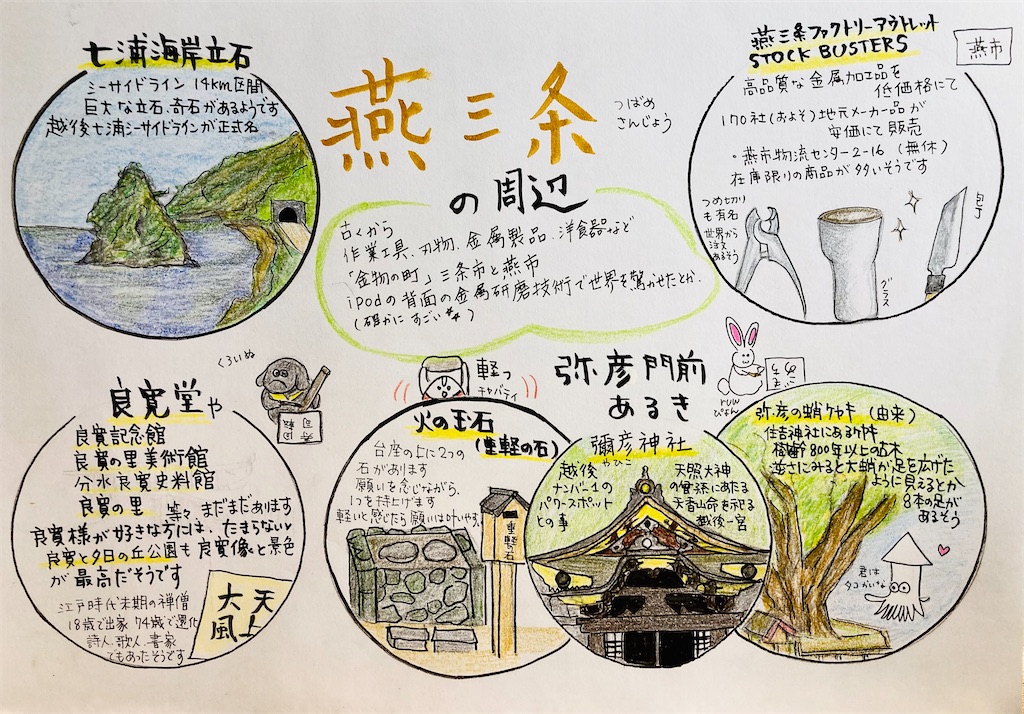 燕三条
つばめ
さんじょう
の周辺
古くから
作業工具、刃物、金属製品、洋食器など
「金物の町」三条市と燕市
ipodの背面の金属研磨技術で世界を驚かせたとか.
(確かに すごい)
七浦海岸立石
シーサイドライン 14km区間
巨大な立石、奇石があるようです
越後七浦シーサイドラインが正式名
燕三条ファクトリーアウトレット
STOCK BUSTERS
燕市
高品質な金属加工品を
低価格にて
170社(およそ)地元メーカー品が
安価にて販売
・燕市物流センター2-16 (無休)
在庫限りの商品が多いそうです
つめ切り
も有名
世界から
注文
あるそう
グラス
包丁
良寛堂や
良寛記念館
良寛の里美術館
分水良寛史料館
良寛の里 等々 まだまだあります
良寛様が好きな方には、たまらない♥
良寛と夕日の丘公園も良寛像と景色
が最高だそうです
江戸時代末期の禅僧
18歳で出家 74歳で遷化
詩人、歌人、書家
でもあったそうです
天上
大風
くろいぬ
軽っ
チャパティ
火の玉石
(重軽の石)
台座の上に2つの
石があります
願いを念じながら、
1つを持上げます
軽いと感じたら願いは叶いやす。
重軽の石
弥彦門前
あるき
ruw
ぴょん
彌彦神社
やひこ
越後
ナンバー1の
パワースポット
との事
天照大神
の曾孫にあたる
天香山命を祀る
越後一宮
弥彦の蛸ケヤキ (由来)
住吉神社にあるケヤキ
樹齢800年以上の古木
逆さにみると大蛸が足を広げた
ように見えるとか
8本の足が
あるそう
君は
タコかいな